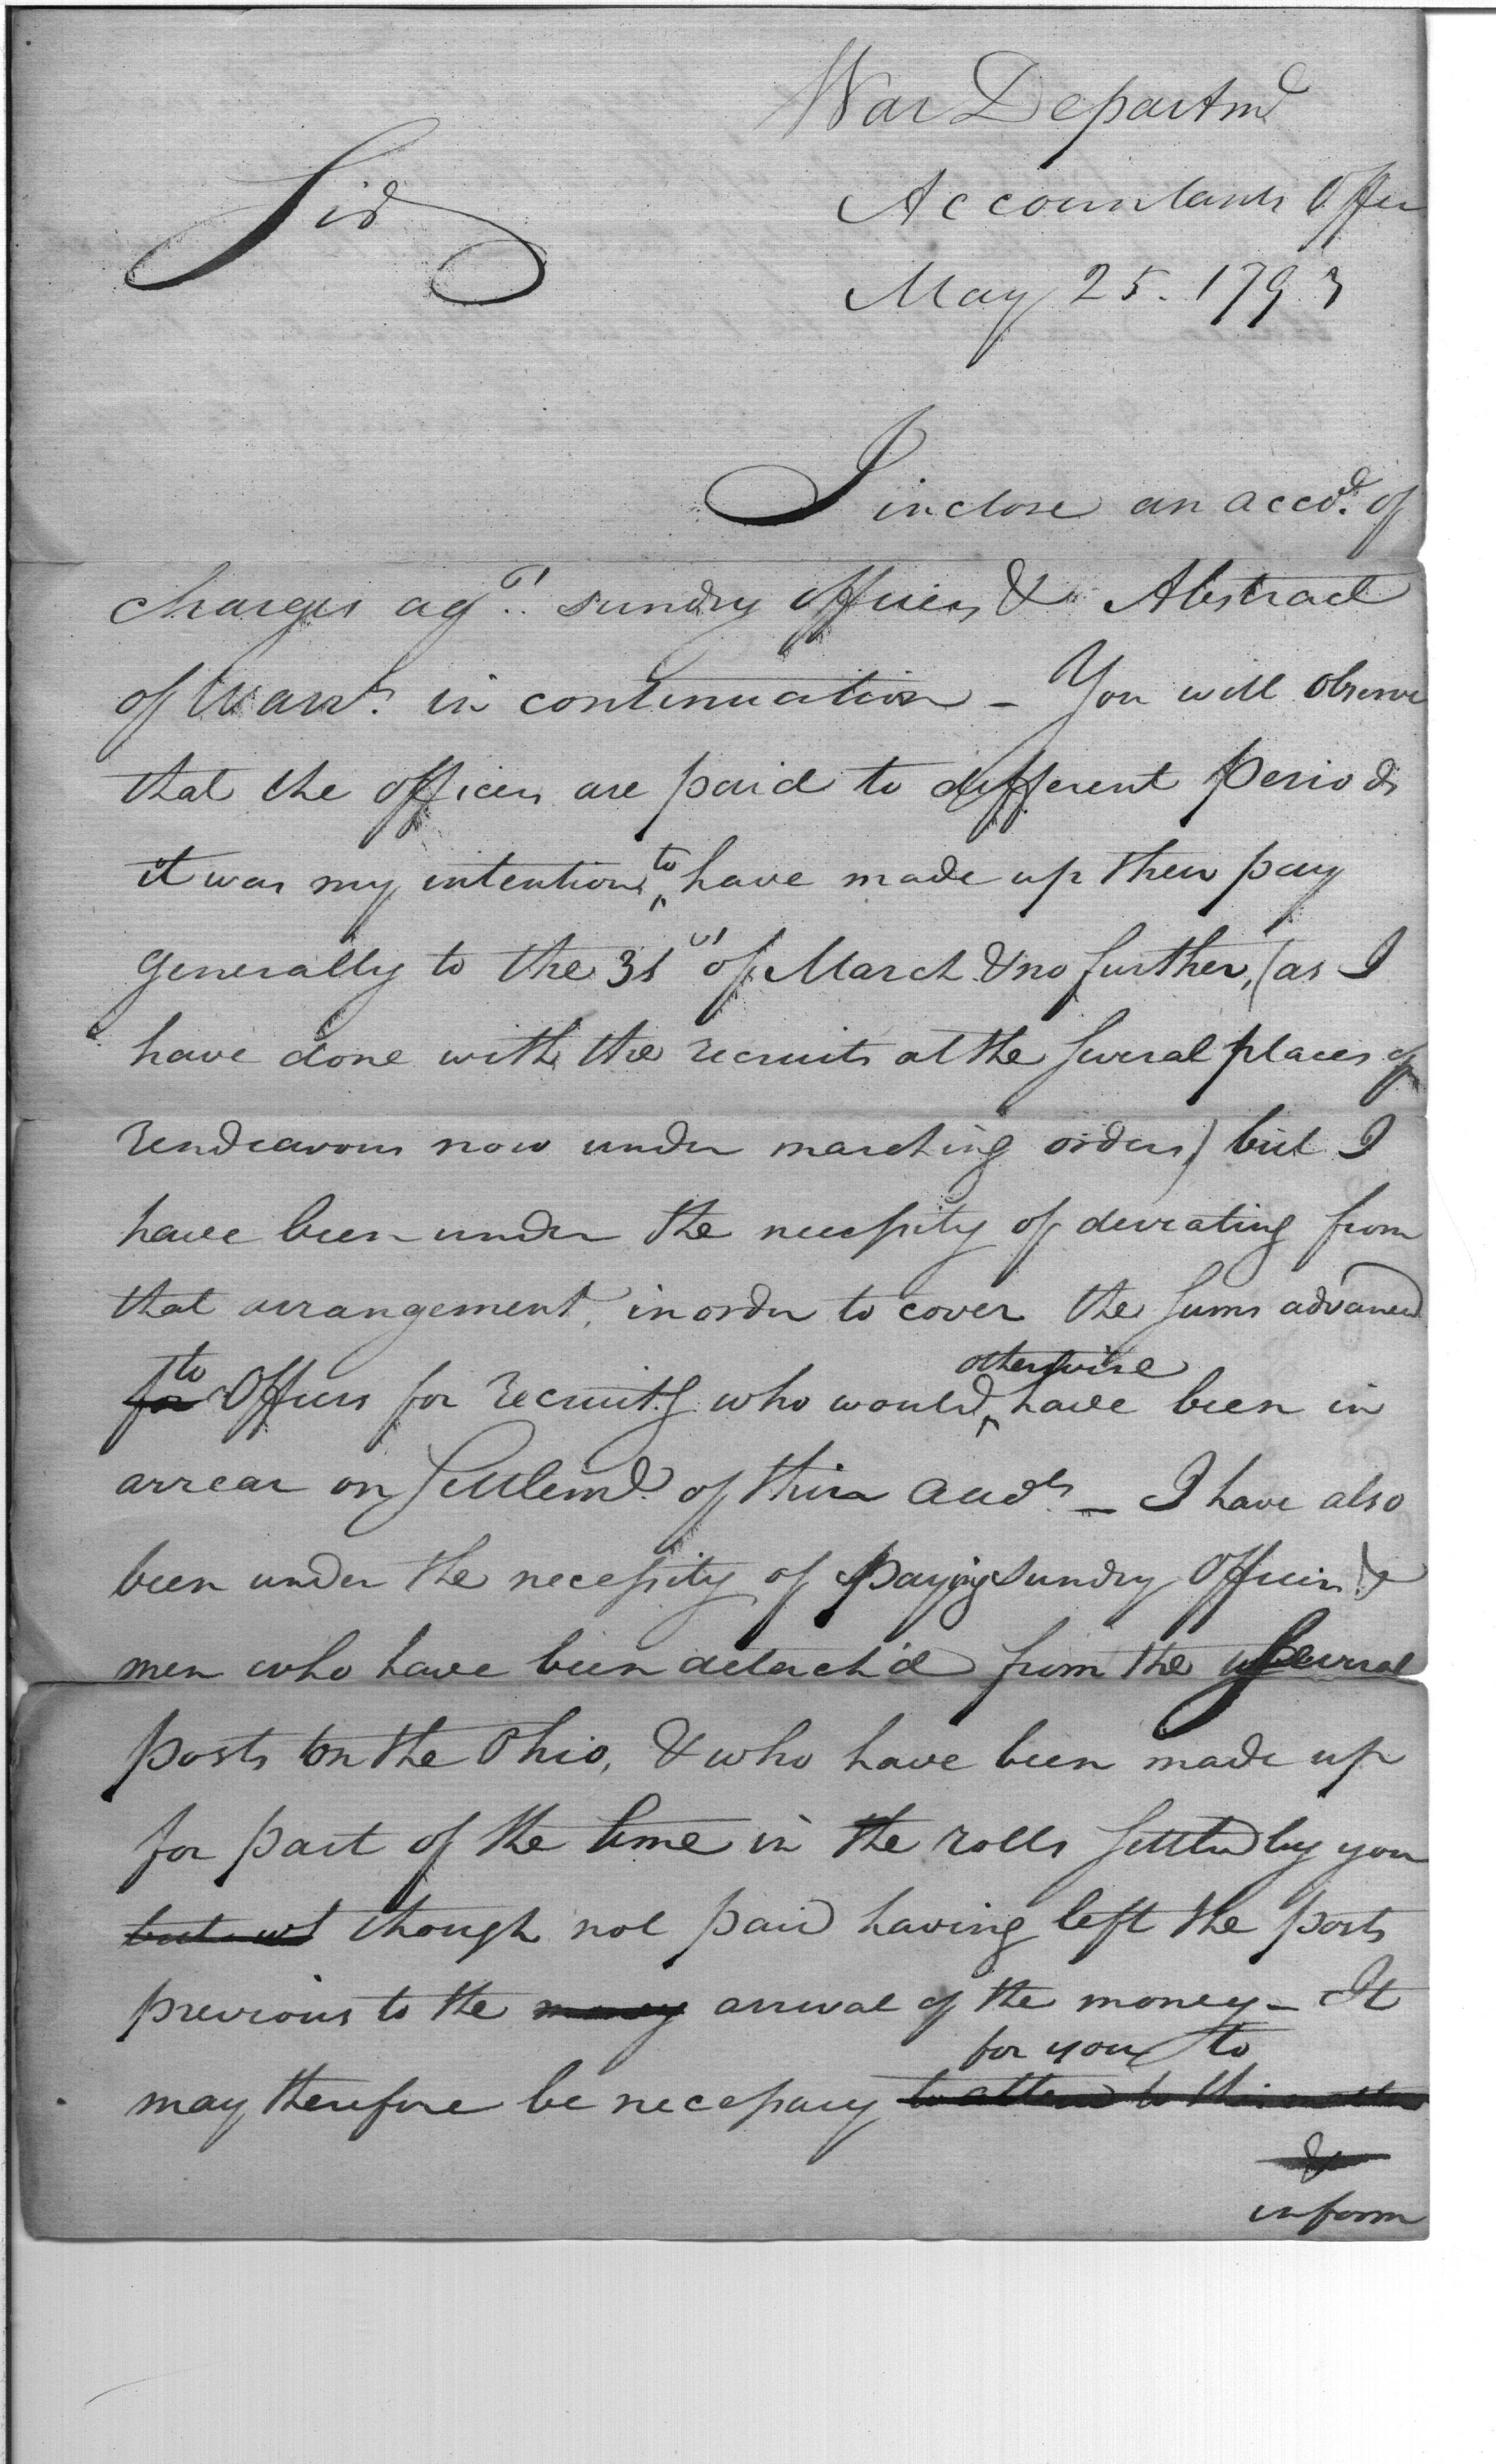 War Departmt
Accountants Office
May 25. 1793
Sir
I inclose an accot. of
charges agst. sundry officers & Abstract
of Warrts. in continuation - You will observe
that the officers are paid to different periods
it was my intention to have made up their pay
generally to the 31st of March & no further, (as I
have done with the recruits at the several places of
rendezvous now under marching orders) but I
have been under the necessity of deviating from
that arrangement, in order to cover the sums advanced
for to Officers for recruitg who would otherwise have been in
arrear on settlemt. of their accots - I have also
been under the necessity of paying sundry officers &
men who have been detach'd from the several
posts on the Ohio, & who have been made up
for part of the time in the rolls settled by you
but not though not paid having left the posts
previous to the money arrival of the money - It
may therefore be necessary to attend to this matter for you to
&
inform